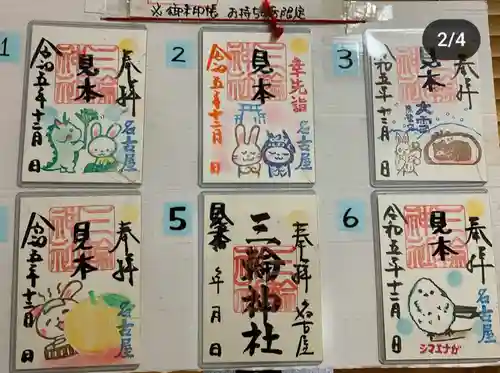 ※ 御朱印帳 お持ちの方限定
2/4
1
奉拝
名古屋
三輪神社
見本
令和五年十二月 日
2
幸先詣
名古屋
三輪神社
見本
令和五年十二月 日
3
奉拝
名古屋
見本
大雪
令和五年十二月 日
奉拝
名古屋
三輪神社
見本
令和五年十二月 日
5
奉拝
名古屋
三輪神社
見本
年 月 日
6
奉拝
名古屋
三輪神社
見本
令和五年十二月 日
シマエナガ